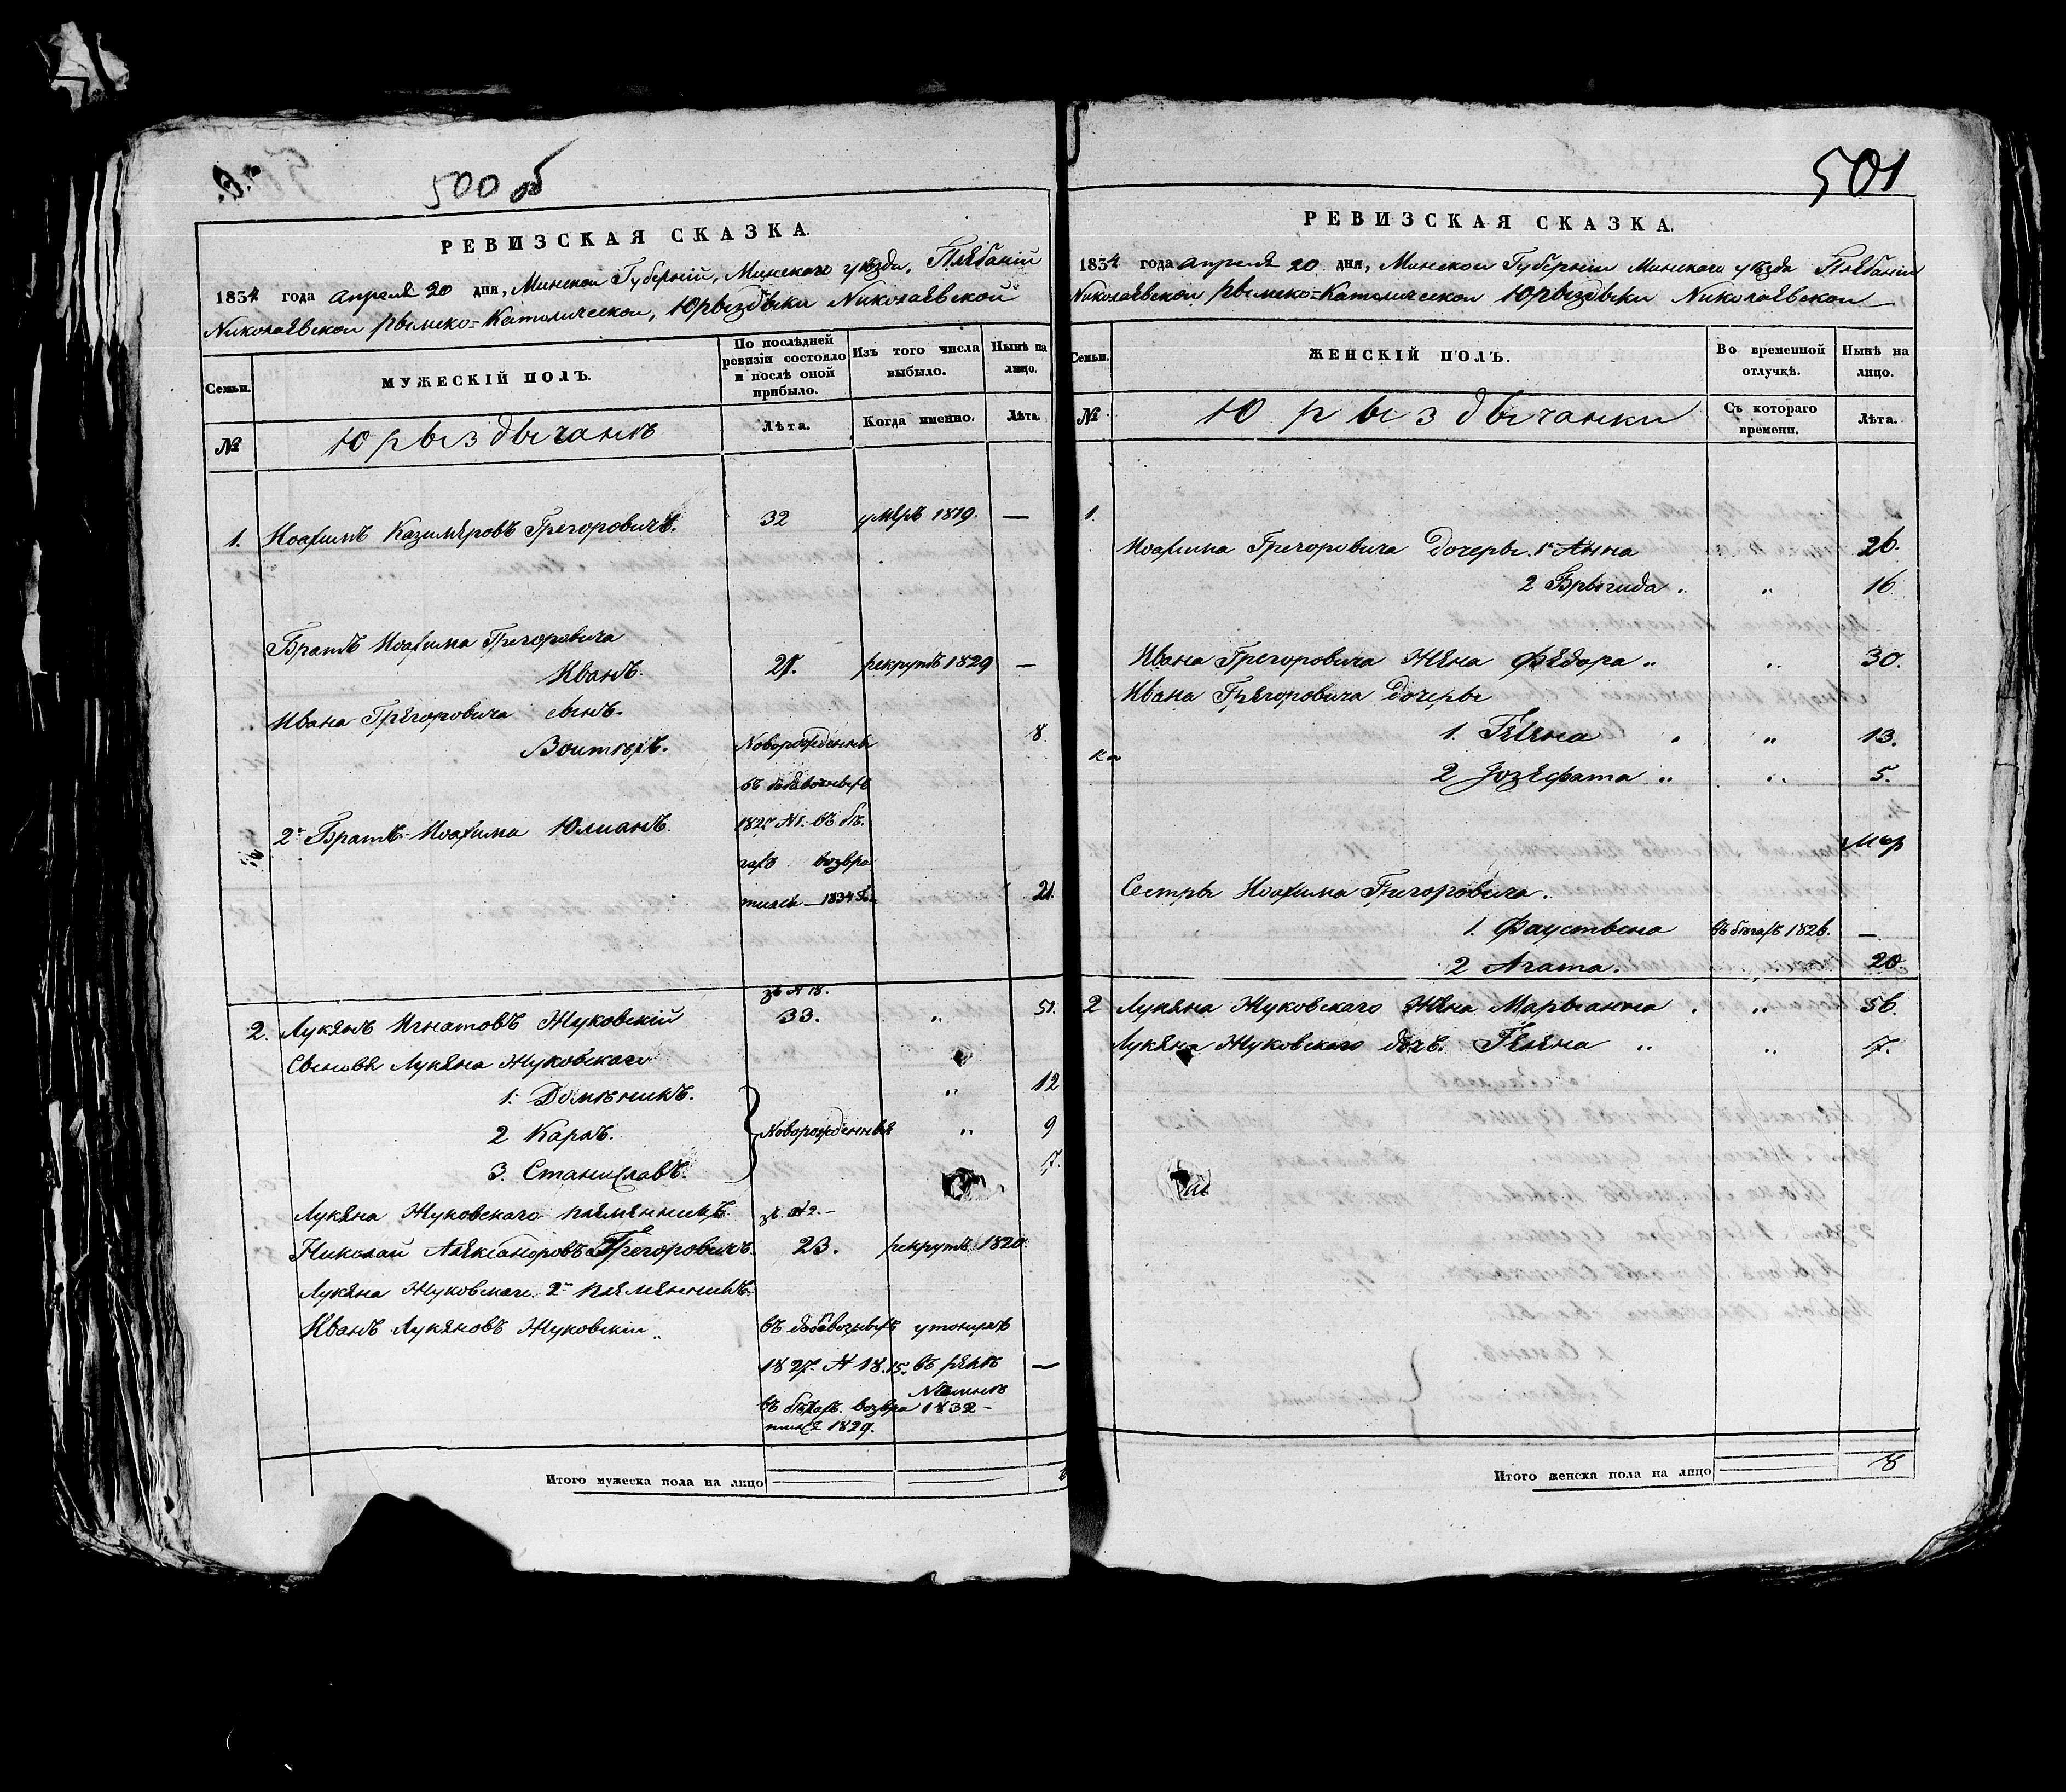 500 об
РЕВИЗСКАЯ СКАЗКА.
1834 года апреля 20 дня, Минской Губерніи, Минскаго уезда, Плебаніи
Николаевской рымско=Католической, Юрыздыки Николаевской
Семьи.
МУЖЕСКІЙ ПОЛЪ.
По послѣдней ревизіи состояло и послѣ оной прибыло.
Изъ того числа выбыло.
Нынѣ на лицо.
№
Юрыздычанъ
Лѣта.
Когда именно.
Лѣта.
1. Иоахимъ Казимеровъ Грегоровичъ. 32 умеръ 1819. —
Братъ Иоахима Грегоровича
Иванъ. рекрутъ 1829 —
Ивана Грегоровича сынъ.
Воитехъ. Новорожденны 8.
въ добавочныхъ
2й Братъ Иоахима Юлианъ. 1827 N1. въ бѣ.
гахъ возвра
тился 1834 21.
зъ N 18.
2. Лукянъ Игнатовъ Жуковскій 33. „ 51.
Сыновя Лукяна Жуковскаго
1. Доминикъ. „ 12
2 Кароль. Новорожденныя „ 9
3. Станиславъ. 7.
Лукяна Жуковскаго племенникъ. зъ N2. —
Николай Александровъ Грегоровичъ. 23. рекрутъ 1820
Лукяна Жуковскаго 2й племянникъ.
Иванъ Лукяновъ Жуковскій въ добавочныхъ утонулъ
1827 N 18. 15. въ реке —
Неминъ
въ бѣгахъ. возвра 1832 —
тился 1829.
Итого мужеска пола на лицо
501
РЕВИЗСКАЯ СКАЗКА.
1834 года апреля 20 дня, Минской Губерніи Минскаго уезда Плебаніи
Николаевской рымско=Католической Юрыздыки Николаевской
Семьи.
ЖЕНСКІЙ ПОЛЪ.
Во временной отлучкѣ.
Нынѣ на лицо.
№
Юрыздычанки
Съ котораго времени.
Лѣта.
1.
Иоахима Грегоровича дочеры. 1я Анна 26.
2 Брыгида „ 16
Ивана Грегоровича жена Федора „ „ 30.
Ивана Грегоровича дочеры
1. Гелена „ 13.
2 Іозефата „ „ 5.
Сестры Иоахима Грегоровича.
1. Фаустына въ бѣгахъ 1826. —
2 Агата. 20.
2 Лукяна Жуковскаго жена Марыанна „ 56.
Лукяна Жуковскаго дочъ. Гелена „ „ 7.
Итого женска пола на лицо 8